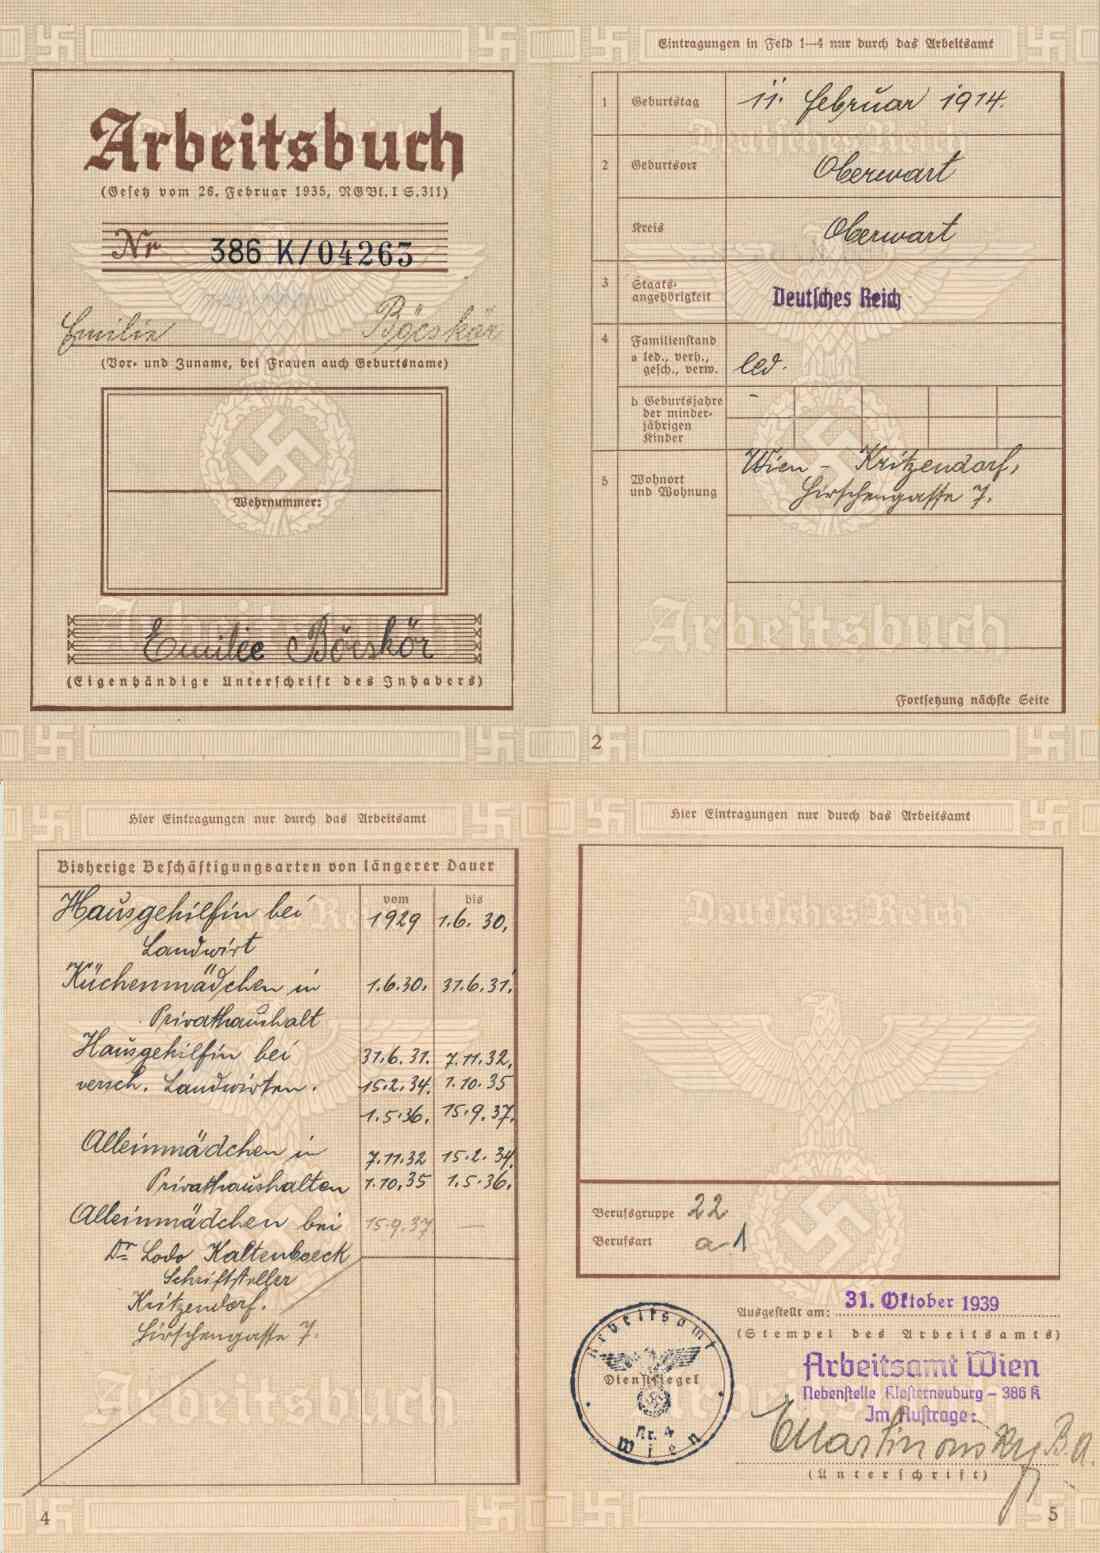 Arbeitsbuch
(Gesetz vom 26. Februar 1935, RGBl. I S.311)
Nr 386 K/04263
Emilie Böcskör
(Vor- und Zuname, bei Frauen auch Geburtsname)
Wehrnummer:
Emilie Böcskör
(Eigenhändige Unterschrift des Inhabers)
Eintragungen in Feld 1–4 nur durch das Arbeitsamt
Deutsches Reich
1 Geburtstag 11. Februar 1914.
2 Geburtsort Oberwart
Kreis Oberwart
3 Staats-
angehörigkeit Deutsches Reich
4 Familienstand
a led., verh.,
gesch., verw. led.
b Geburtsjahre –
der minder-
jährigen
Kinder
5 Wohnort
und Wohnung
Wien – Kritzendorf,
Hirschengasse 7.
Arbeitsbuch
Fortsetzung nächste Seite
2
Hier Eintragungen nur durch das Arbeitsamt
Bisherige Beschäftigungsarten von längerer Dauer
vom bis
Hausgehilfin bei 1929 1.6. 30.
Landwirt
Küchenmädchen in 1.6.30. 31.6.31.
Privathaushalt
Hausgehilfin bei 31.6.31. 7.11.32.
versch. Landwirten. 15.2.34. 1.10.35
1.5.36. 15.9.37.
Alleinmädchen in 7.11.32 15.2.34.
Privathaushalten 1.10.35 1.5.36.
Alleinmädchen bei 15.9.37 —
Dr Lodo Kaltenboeck
Schriftsteller
Kritzendorf.
Hirschengasse 7.
Arbeitsbuch
4
Hier Eintragungen nur durch das Arbeitsamt
Deutsches Reich
Berufsgruppe 22
Berufsart a-1
Ausgestellt am: 31. Oktober 1939
(Stempel des Arbeitsamts)
Arbeitsamt Wien
Nebenstelle Klosterneuburg – 386 K
Im Auftrage:
Arbeitsamt
Dienstsiegel
Nr. 4
Wien
(Unterschrift)
5